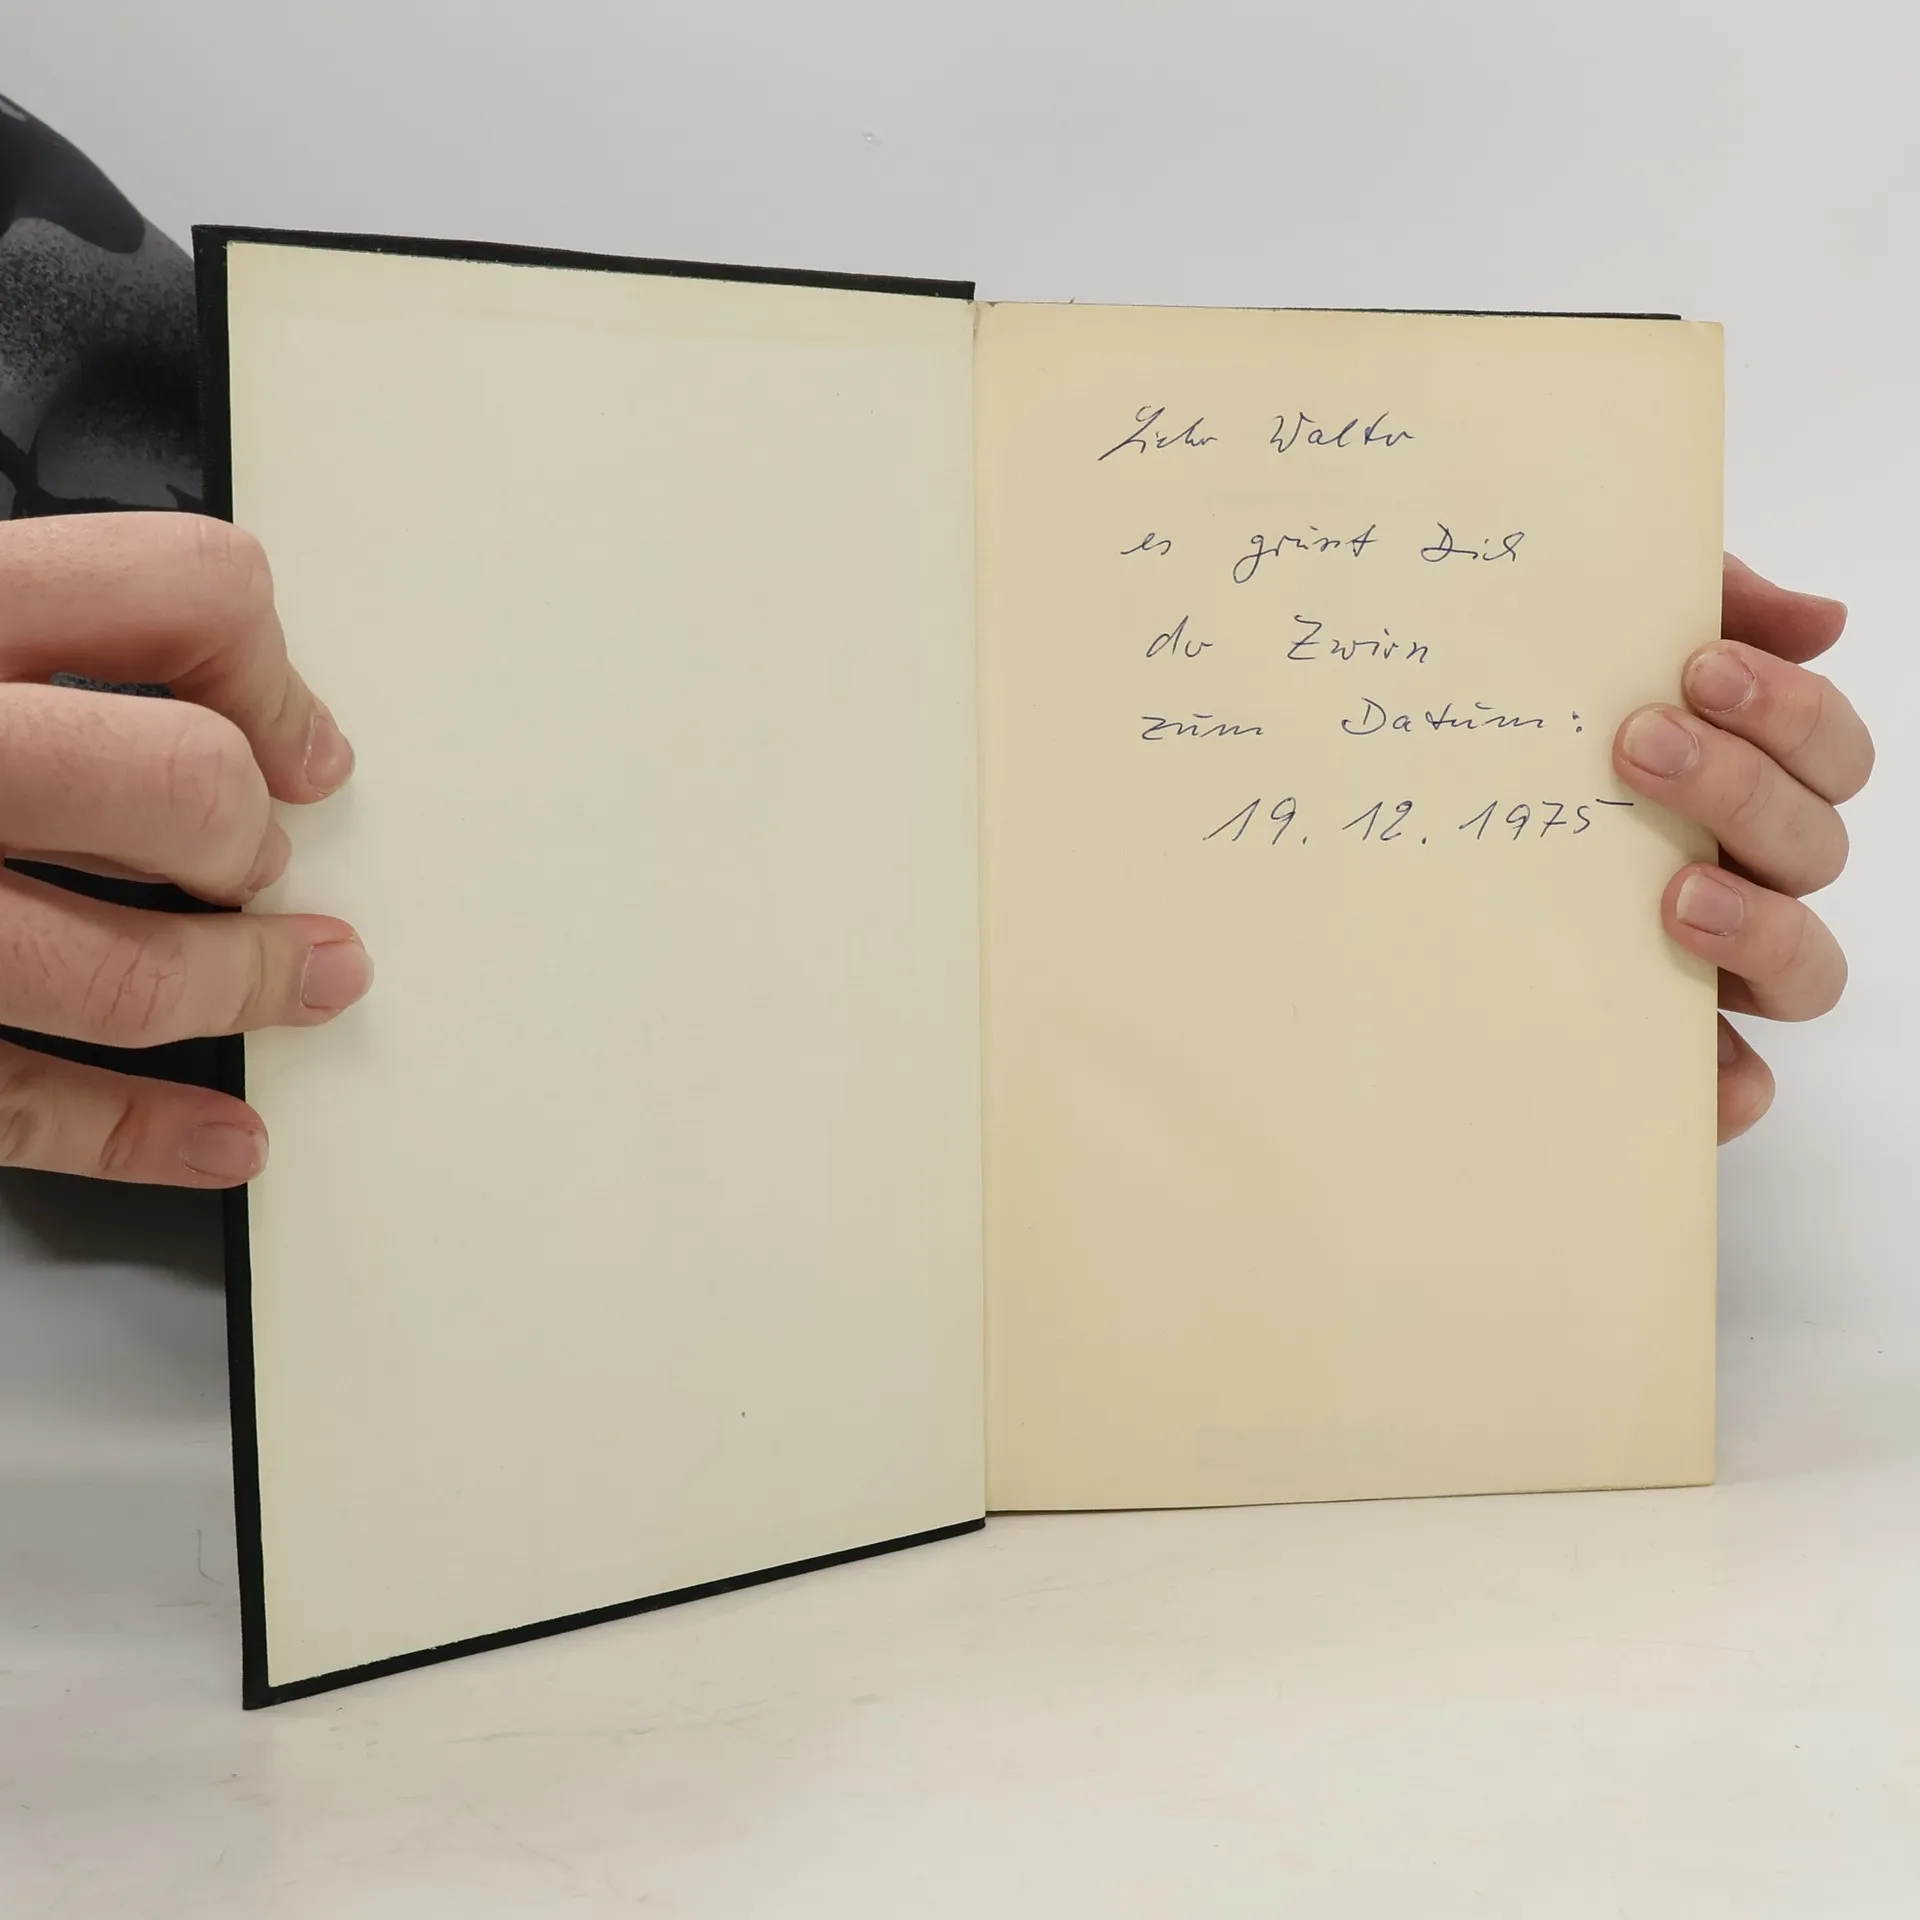 Lieber Walter
es grüsst Dich
der Zwirn
zum Datum:
19. 12. 1975